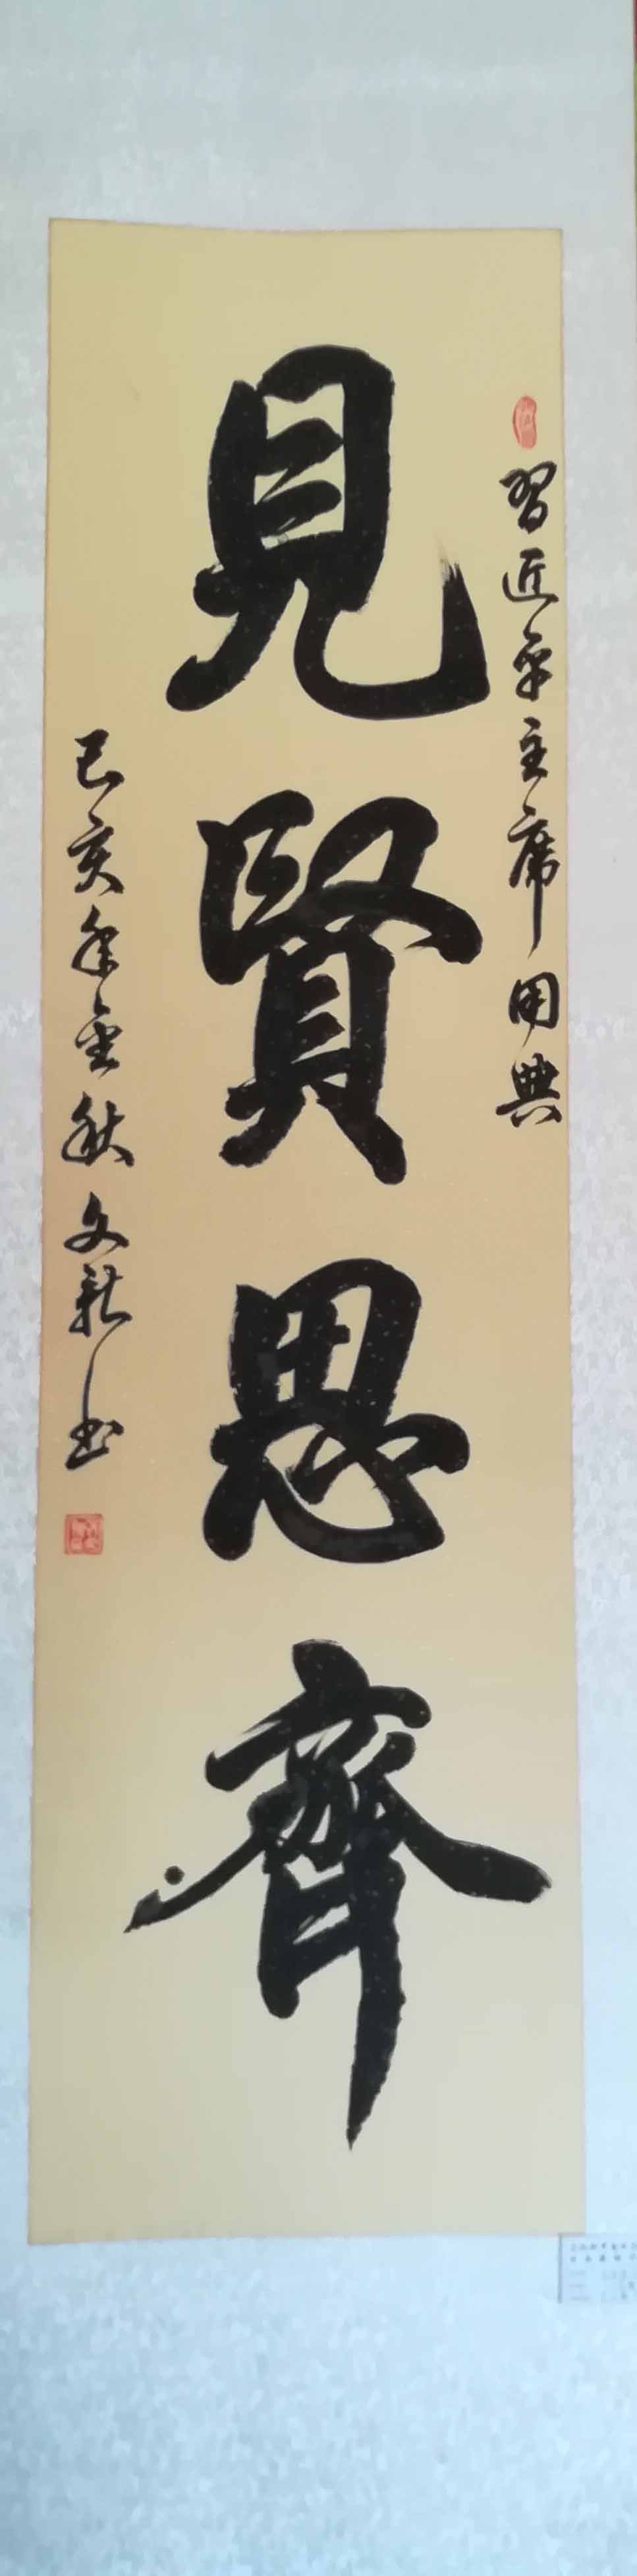 習近平主席用典
見賢思齊
己亥年金秋文新书